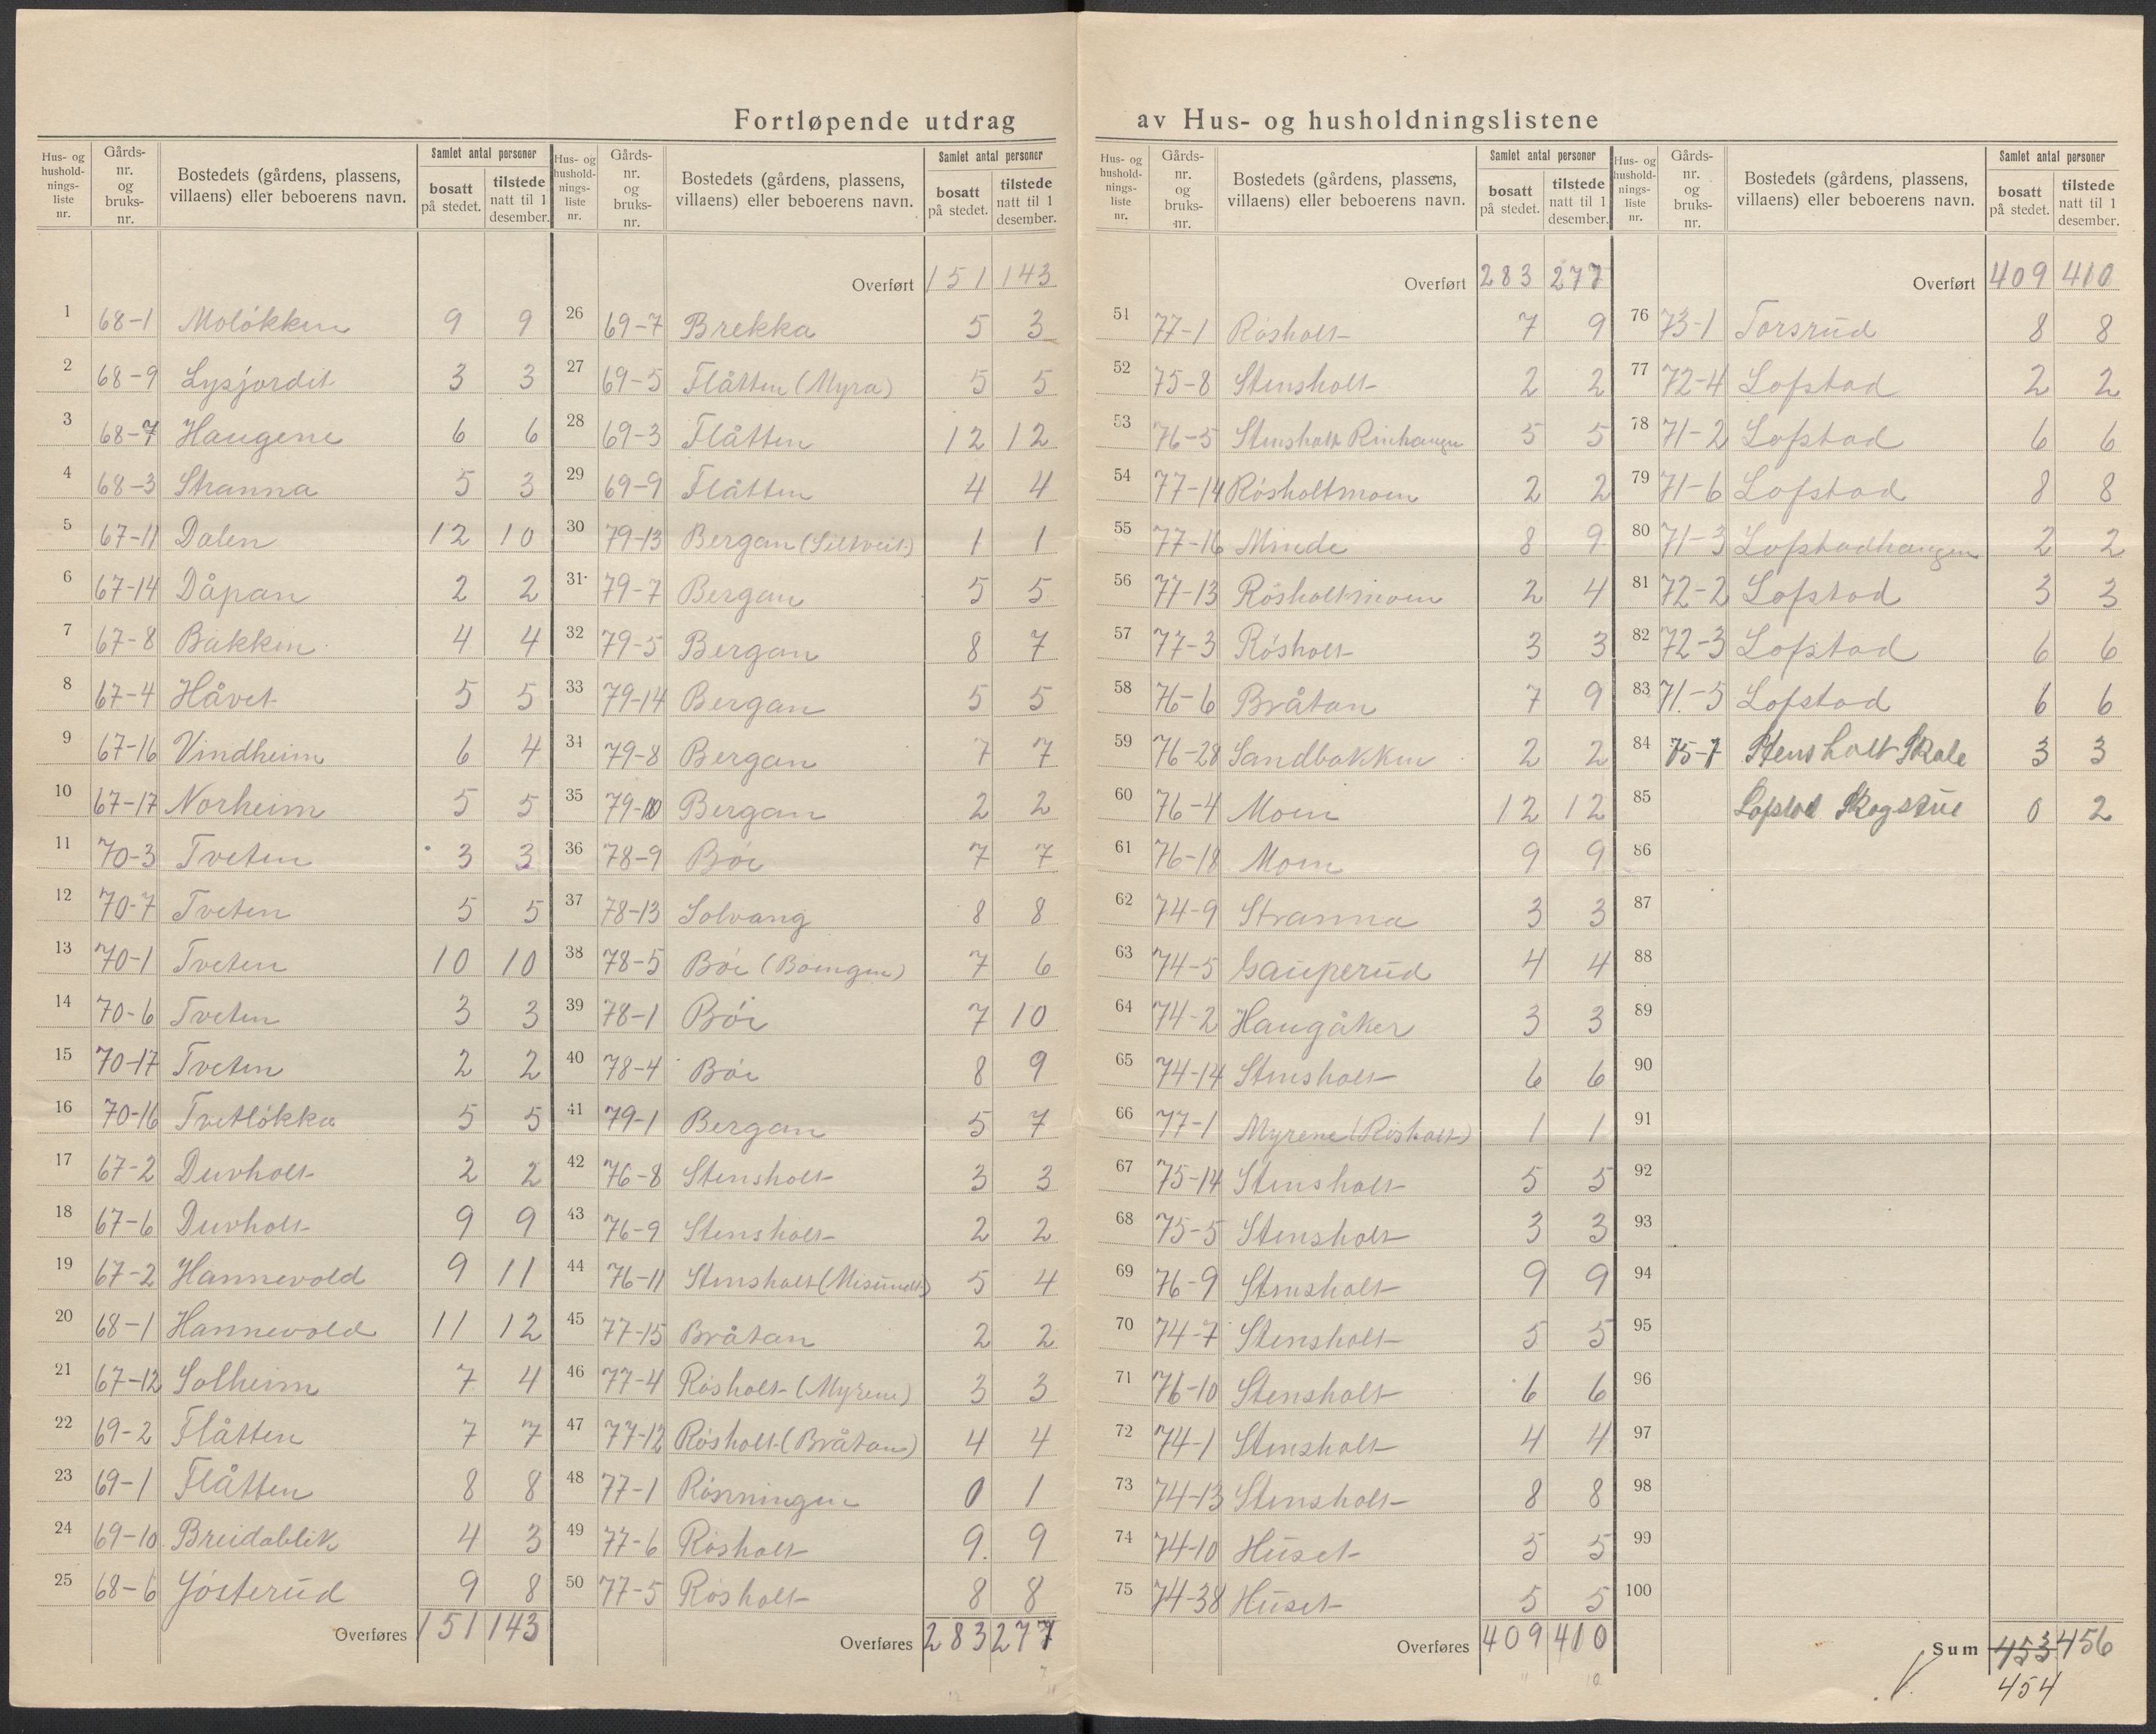 Fortløpende utdrag av Hus- og husholdningslistene
Hus- og husholdningsliste nr.
Gårds- nr. og bruks- nr.
Bostedets (gårdens, plassens, villaens) eller beboerens navn.
Samlet antal personer
bosatt på stedet.
tilstede natt til 1 desember.
1 68-1 Moløkken 9 9
2 68-9 Lysjordet 3 3
3 68-7 Haugene 6 6
4 68-3 Stranna 5 3
5 67-11 Dalen 12 10
6 67-14 Dåpan 2 2
7 67-8 Bakken 4 4
8 67-4 Håvet 5 5
9 67-16 Vindheim 6 4
10 67-17 Norheim 5 5
11 70-3 Tveten 3 3
12 70-7 Tveten 5 5
13 70-1 Tveten 10 10
14 70-6 Tveten 3 3
15 70-17 Tveten 2 2
16 70-16 Tvetløkka 5 5
17 67-2 Duvholt 2 2
18 67-6 Duvholt 9 9
19 67-2 Hannevold 9 11
20 68-1 Hannevold 11 12
21 67-12 Solheim 7 4
22 69-2 Flåtten 7 7
23 69-1 Flåtten 8 8
24 69-10 Breidablik 4 3
25 68-6 Jøsterud 9 8
Overføres 151 143
Hus- og husholdningsliste nr.
Gårds- nr. og bruks- nr.
Bostedets (gårdens, plassens, villaens) eller beboerens navn.
Samlet antal personer
bosatt på stedet.
tilstede natt til 1 desember.
Overført 151 143
26 69-7 Brekka 5 3
27 69-5 Flåtten (Myra) 5 5
28 69-3 Flåtten 12 12
29 69-9 Flåtten 4 4
30 79-13 Bergan 1 1
31 79-7 Bergan 5 5
32 79-5 Bergan 8 7
33 79-14 Bergan 5 5
34 79-8 Bergan 7 7
35 79-10 Bergan 2 2
36 78-9 Bøe 7 7
37 78-13 Solvang 8 8
38 78-5 Bøe 7 6
39 78-1 Bøe 7 10
40 78-4 Bøe 8 9
41 79-1 Bergan 5 7
42 76-8 Stensholt 3 3
43 76-9 Stensholt 2 2
44 76-11 Stensholt 5 4
45 77-15 Bråtan 2 2
46 77-4 Røsholt (Myrene) 3 3
47 77-12 Røsholt (Bråtan) 4 4
48 77-1 0 1
49 77-6 Røsholt 9 9
50 77-5 Røsholt 8 8
Overføres 283 277
Hus- og husholdningsliste nr.
Gårds- nr. og bruks- nr.
Bostedets (gårdens, plassens, villaens) eller beboerens navn.
Samlet antal personer
bosatt på stedet.
tilstede natt til 1 desember.
Overført 283 277
51 77-1 Røsholt 7 9
52 75-8 Stensholt 2 2
53 76-5 Stensholt 5 5
54 77-14 Røsholtmoen 2 2
55 77-16 Minde 8 9
56 77-13 Røsholtmoen 2 4
57 77-3 Røsholt 3 3
58 76-6 Bråtan 7 9
59 76-28 Sandbakken 2 2
60 76-4 Moen 12 12
61 76-18 Moen 9 9
62 74-9 Stranna 3 3
63 74-5 Gauperud 4 4
64 74-2 Haugåker 3 3
65 74-14 Stensholt 6 6
66 77-1 Myrene (Røsholt) 1 1
67 75-14 Stensholt 5 5
68 75-5 Stensholt 3 3
69 76-9 Stensholt 9 9
70 74-7 Stensholt 5 5
71 76-10 Stensholt 6 6
72 74-1 Stensholt 4 4
73 74-13 Stensholt 8 8
74 74-10 Huset 5 5
75 74-38 Huset 5 5
Overføres 409 410
Hus- og husholdningsliste nr.
Gårds- nr. og bruks- nr.
Bostedets (gårdens, plassens, villaens) eller beboerens navn.
Samlet antal personer
bosatt på stedet.
tilstede natt til 1 desember.
Overført 409 410
76 73-1 Torsrud 8 8
77 72-4 Lofstad 2 2
78 71-2 Lofstad 6 6
79 71-6 Lofstad 8 8
80 71-3 Lofstadhaugen 2 2
81 72-2 Lofstad 3 3
82 72-3 Lofstad 6 6
83 71-5 Lofstad 6 6
84 75-7 Stensholt Skole 3 3
85 Lofstad Skogstue 0 2
86
87
88
89
90
91
92
93
94
95
96
97
98
99
100
Sum 453 456
454